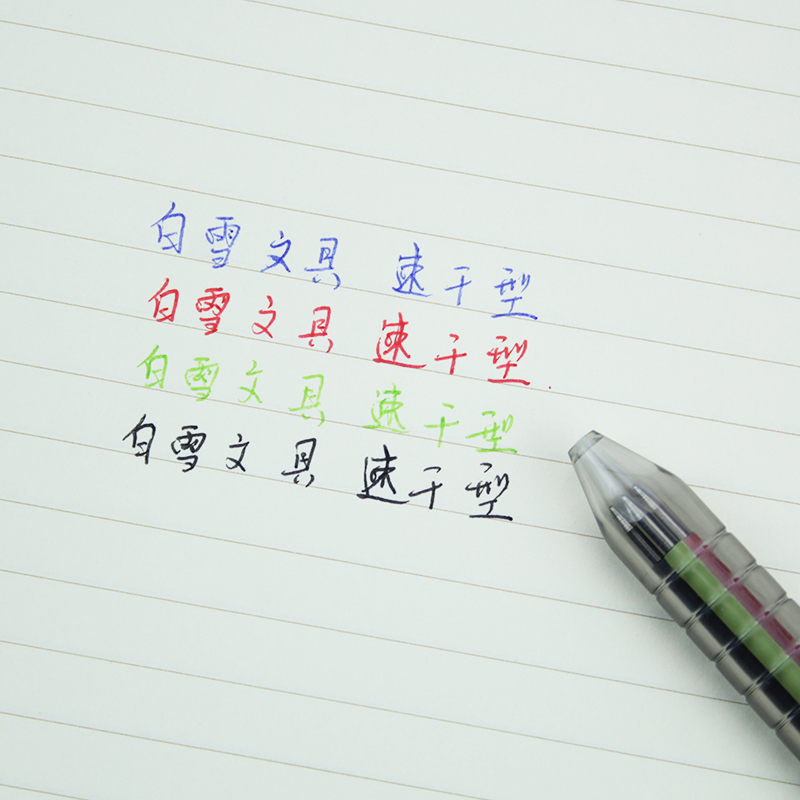 白雪文具 速干型
白雪文具 速干型
白雪文具 速干型
白雪文具 速干型